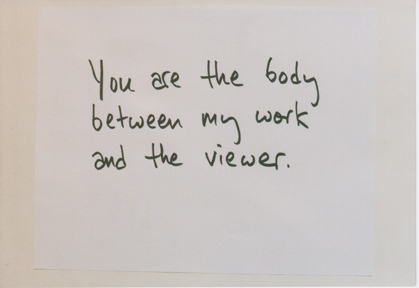 You are the body
between my work
and the viewer.